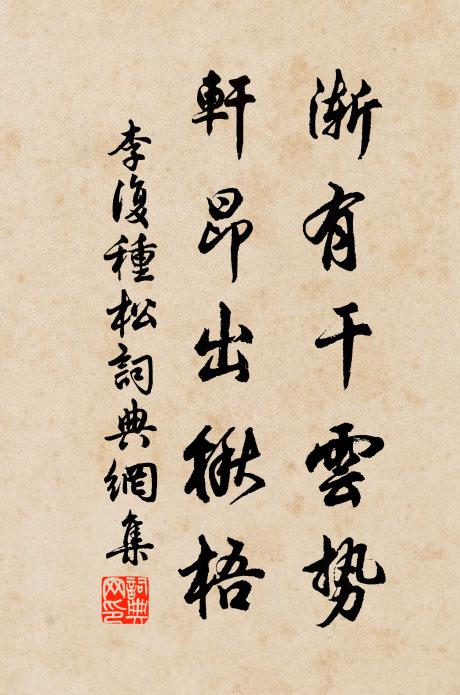 漸有干雲勢
軒昂出楸梧
李復種松詞典網集
詞典
网印